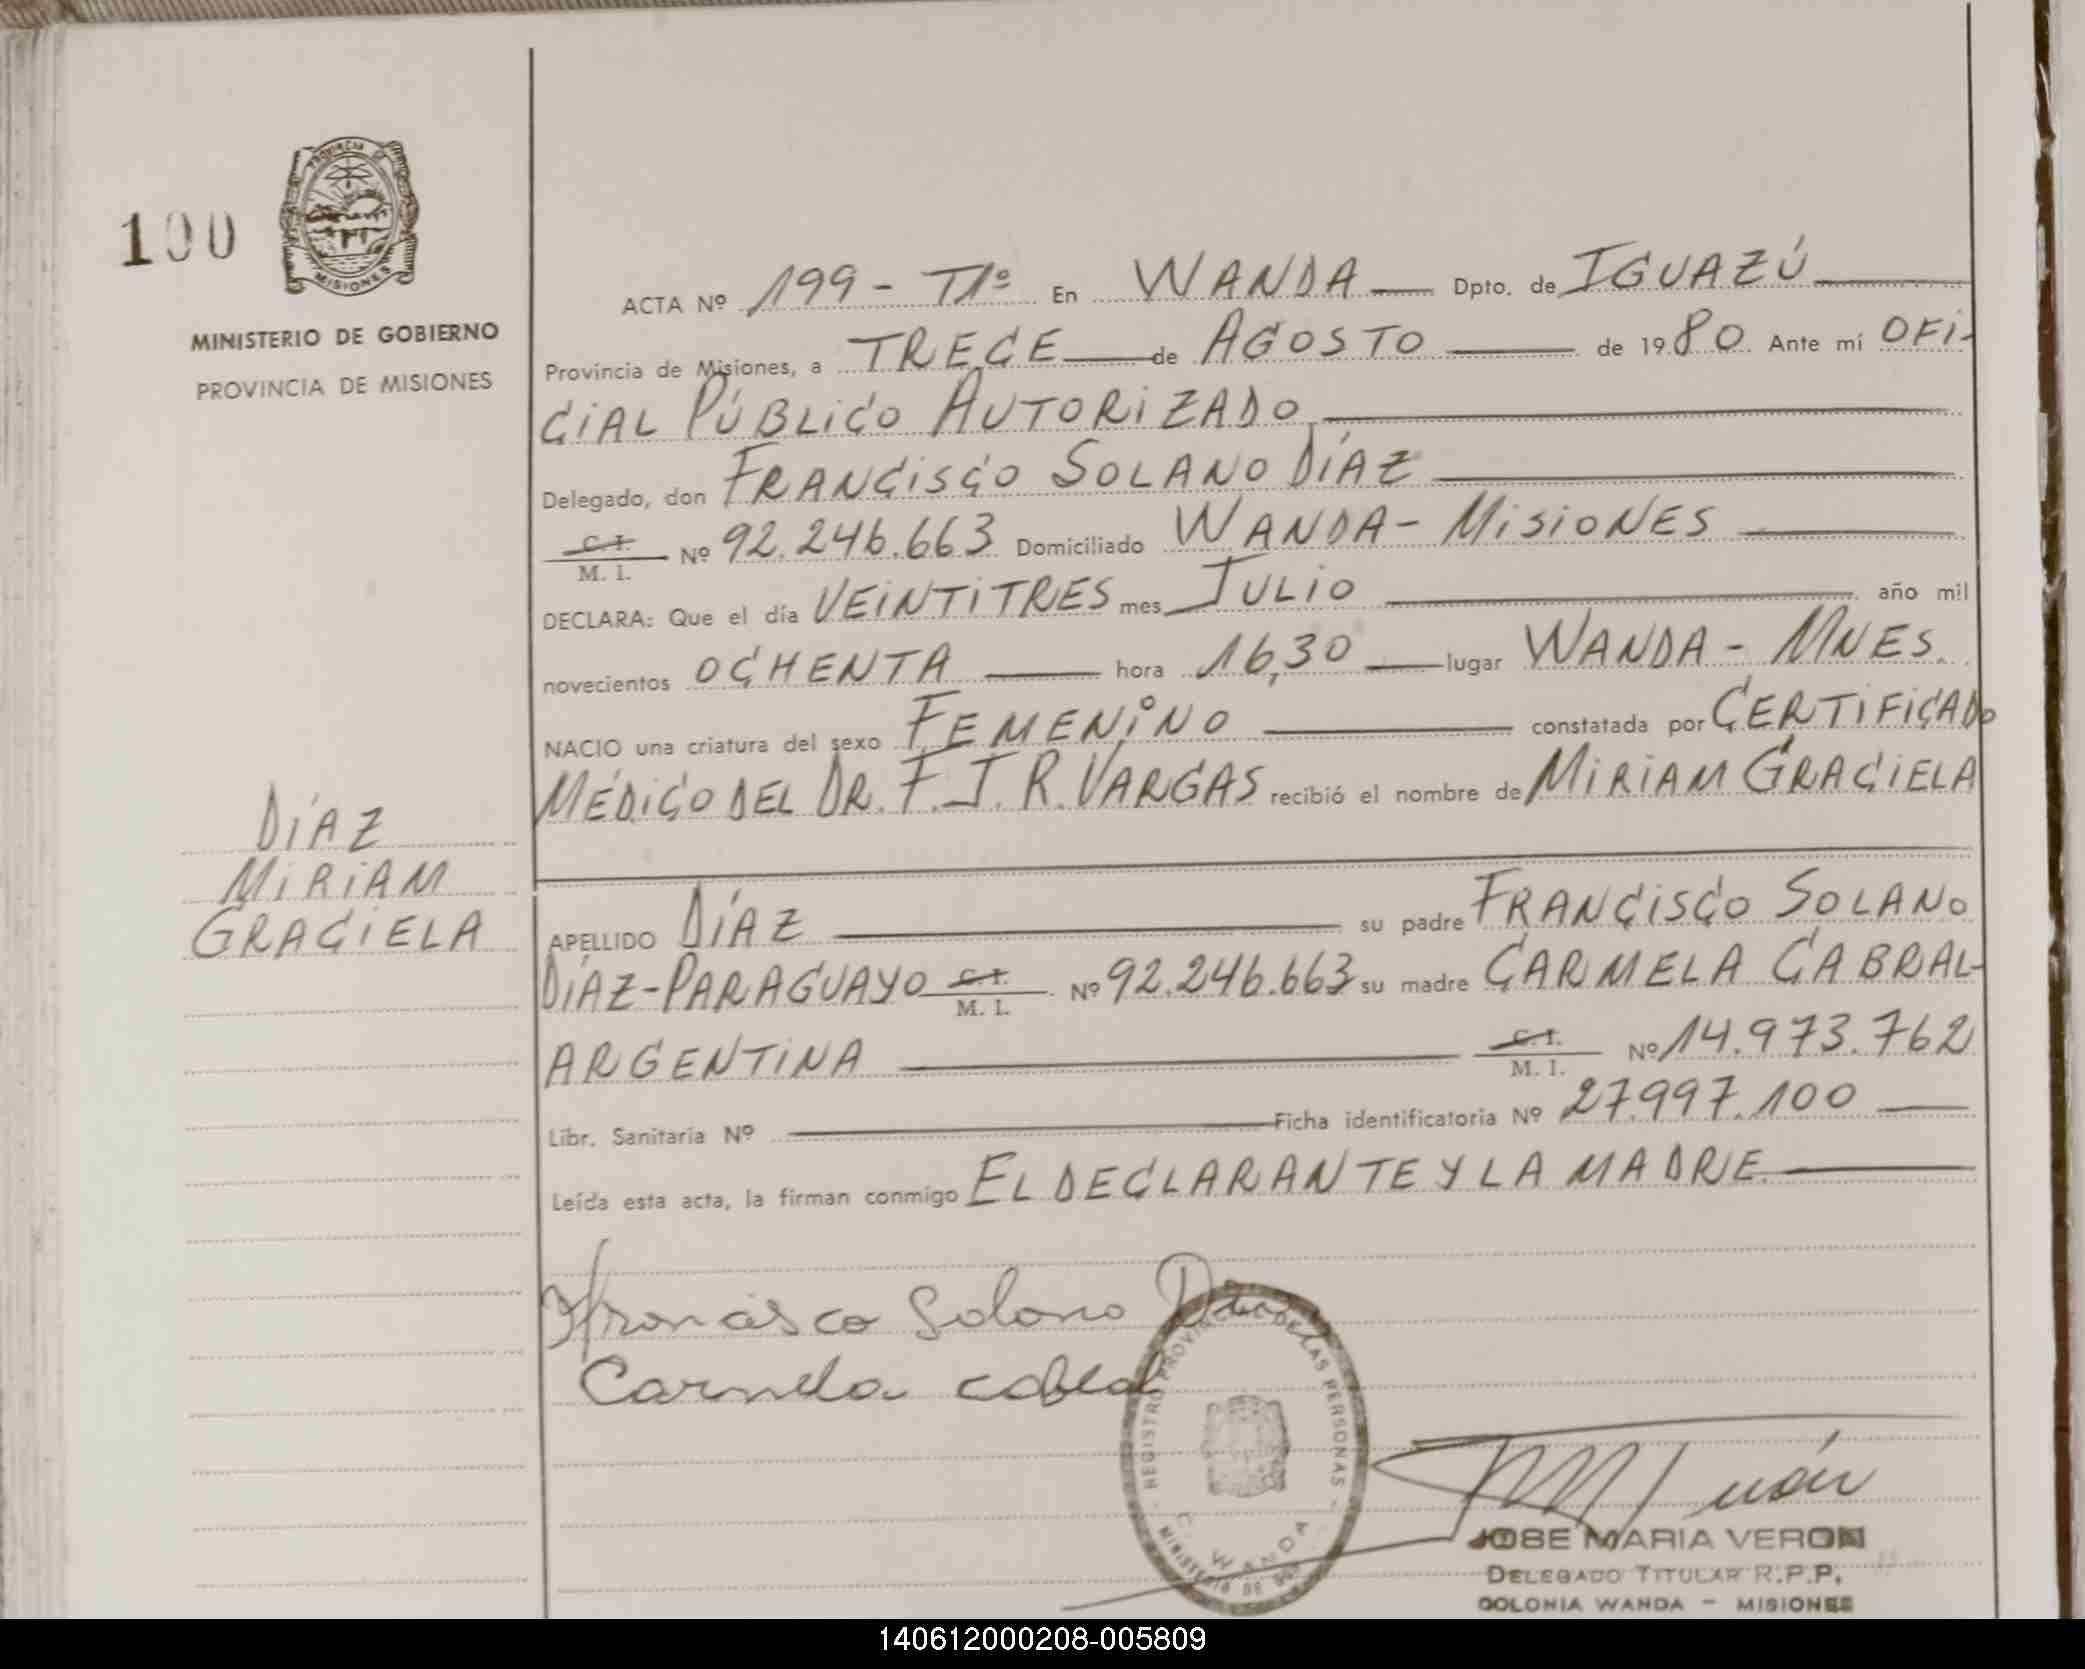 100
PROVINCIA DE
MISIONES
MINISTERIO DE GOBIERNO
PROVINCIA DE MISIONES
ACTA Nº 199 - T1º En WANDA Dpto. de IGUAZÚ
Provincia de Misiones, a TRECE de AGOSTO de 1980. Ante mí OFI-
CIAL PÚBLICO AUTORIZADO
Delegado, don FRANCISCO SOLANO DÍAZ
C.I.
M. I. Nº 92.246.663 Domiciliado WANDA - MISIONES
DECLARA: Que el día VEINTITRES mes JULIO año mil
novecientos OCHENTA hora 16,30 lugar WANDA - MNES.
NACIO una criatura del sexo FEMENINO constatada por CERTIFICADO
MÉDICO DEL DR. F. J. R. VARGAS recibió el nombre de MIRIAM GRACIELA
DÍAZ
MIRIAM
GRACIELA
APELLIDO DÍAZ su padre FRANCISCO SOLANO
DÍAZ - PARAGUAYO C.I. M. I. Nº 92.246.663 su madre CARMELA CABRAL-
ARGENTINA C.I. M. I. Nº 14.973.762
Libr. Sanitaria Nº Ficha identificatoria Nº 27.997.100
Leída esta acta, la firman conmigo EL DECLARANTE Y LA MADRE.
Francisco Solano Diaz
Carmela cabral
REGISTRO PROVINCIAL DE LAS PERSONAS
WANDA
MINISTERIO DE
JOSE MARIA VERON
DELEGADO TITULAR R.P.P.
COLONIA WANDA - MISIONES
140612000208-005809